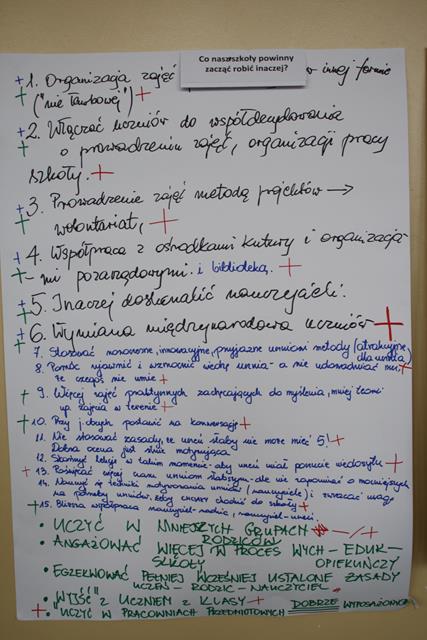 Co nasze szkoły powinny
zacząć robić inaczej?
+ 1. Organizacja zajęć w innej formie
+ ("nie ławkowej") +
+ 2. Włączać uczniów do współdecydowania
+ o prowadzeniu zajęć, organizacji pracy
szkoły. +
+ 3. Prowadzenie zajęć metodą projektów →
+ wolontariat, +
+ 4. Współpraca z ośrodkami kultury i organizacja-
+ mi pozarządowymi. i biblioteką. +
+ 5. Inaczej doskonalić nauczycieli.
+ 6. Wymiana międzynarodowa uczniów +
+ 7. Stosować nowoczesne, innowacyjne, przyjazne uczniowi metody (atrakcyjne
dla ucznia)
8. Pomóc ujawnić i wzmocnić wiedzę ucznia - a nie udowadniać mu,
że czegoś nie umie +
+ 9. Więcej zajęć praktycznych zachęcających do myślenia, mniej teorii
np. zajęcia w terenie +
+ 10. Przy j. obcych postawić na konwersację +
11. Nie stosować zasady, że uczeń słaby nie może mieć 5! +
Dobra ocena jest silnie motywująca.
12. Skończyć lekcję w takim momencie - aby uczeń miał poczucie niedosytu +
+ 13. Poświęcać więcej czasu uczniom słabszym - ale nie zapominać o mocniejszych
14. Nauczyć się techniki motywowania uczniów (nauczyciele) i zwracać uwagę
na potrzeby uczniów, żeby chcieli chodzić do szkoły +
+ 15. Bliższa współpraca nauczyciel-rodzic, nauczyciel-uczeń. +
• UCZYĆ W MNIEJSZYCH GRUPACH +
RODZICÓW
• ANGAŻOWAĆ WIĘCEJ W PROCES WYCH - EDUK -
SZKOŁY OPIEKUŃCZY
• EGZEKWOWAĆ PEŁNIEJ WCZEŚNIEJ USTALONE ZASADY
UCZEŃ - RODZIC - NAUCZYCIEL
• "WYJŚĆ" Z UCZNIEM Z KLASY +
+ • UCZYĆ W PRACOWNIACH PRZEDMIOTOWYCH DOBRZE WYPOSAŻONYCH